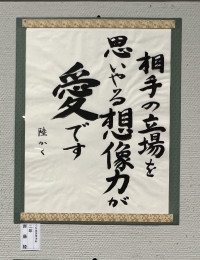 相手の立場を
思いやる想像力が
愛です
陸かく